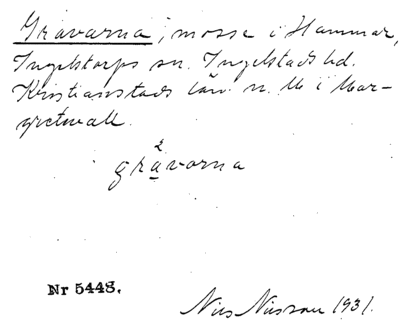 Gravarna, mosse i Hammar,
Ingelstorps sn. Ingelstads hd.
Kristianstads län. n. M i Mar-
gretevall.
gravarna
Nr 5448.
Nils Nilsson 1931.